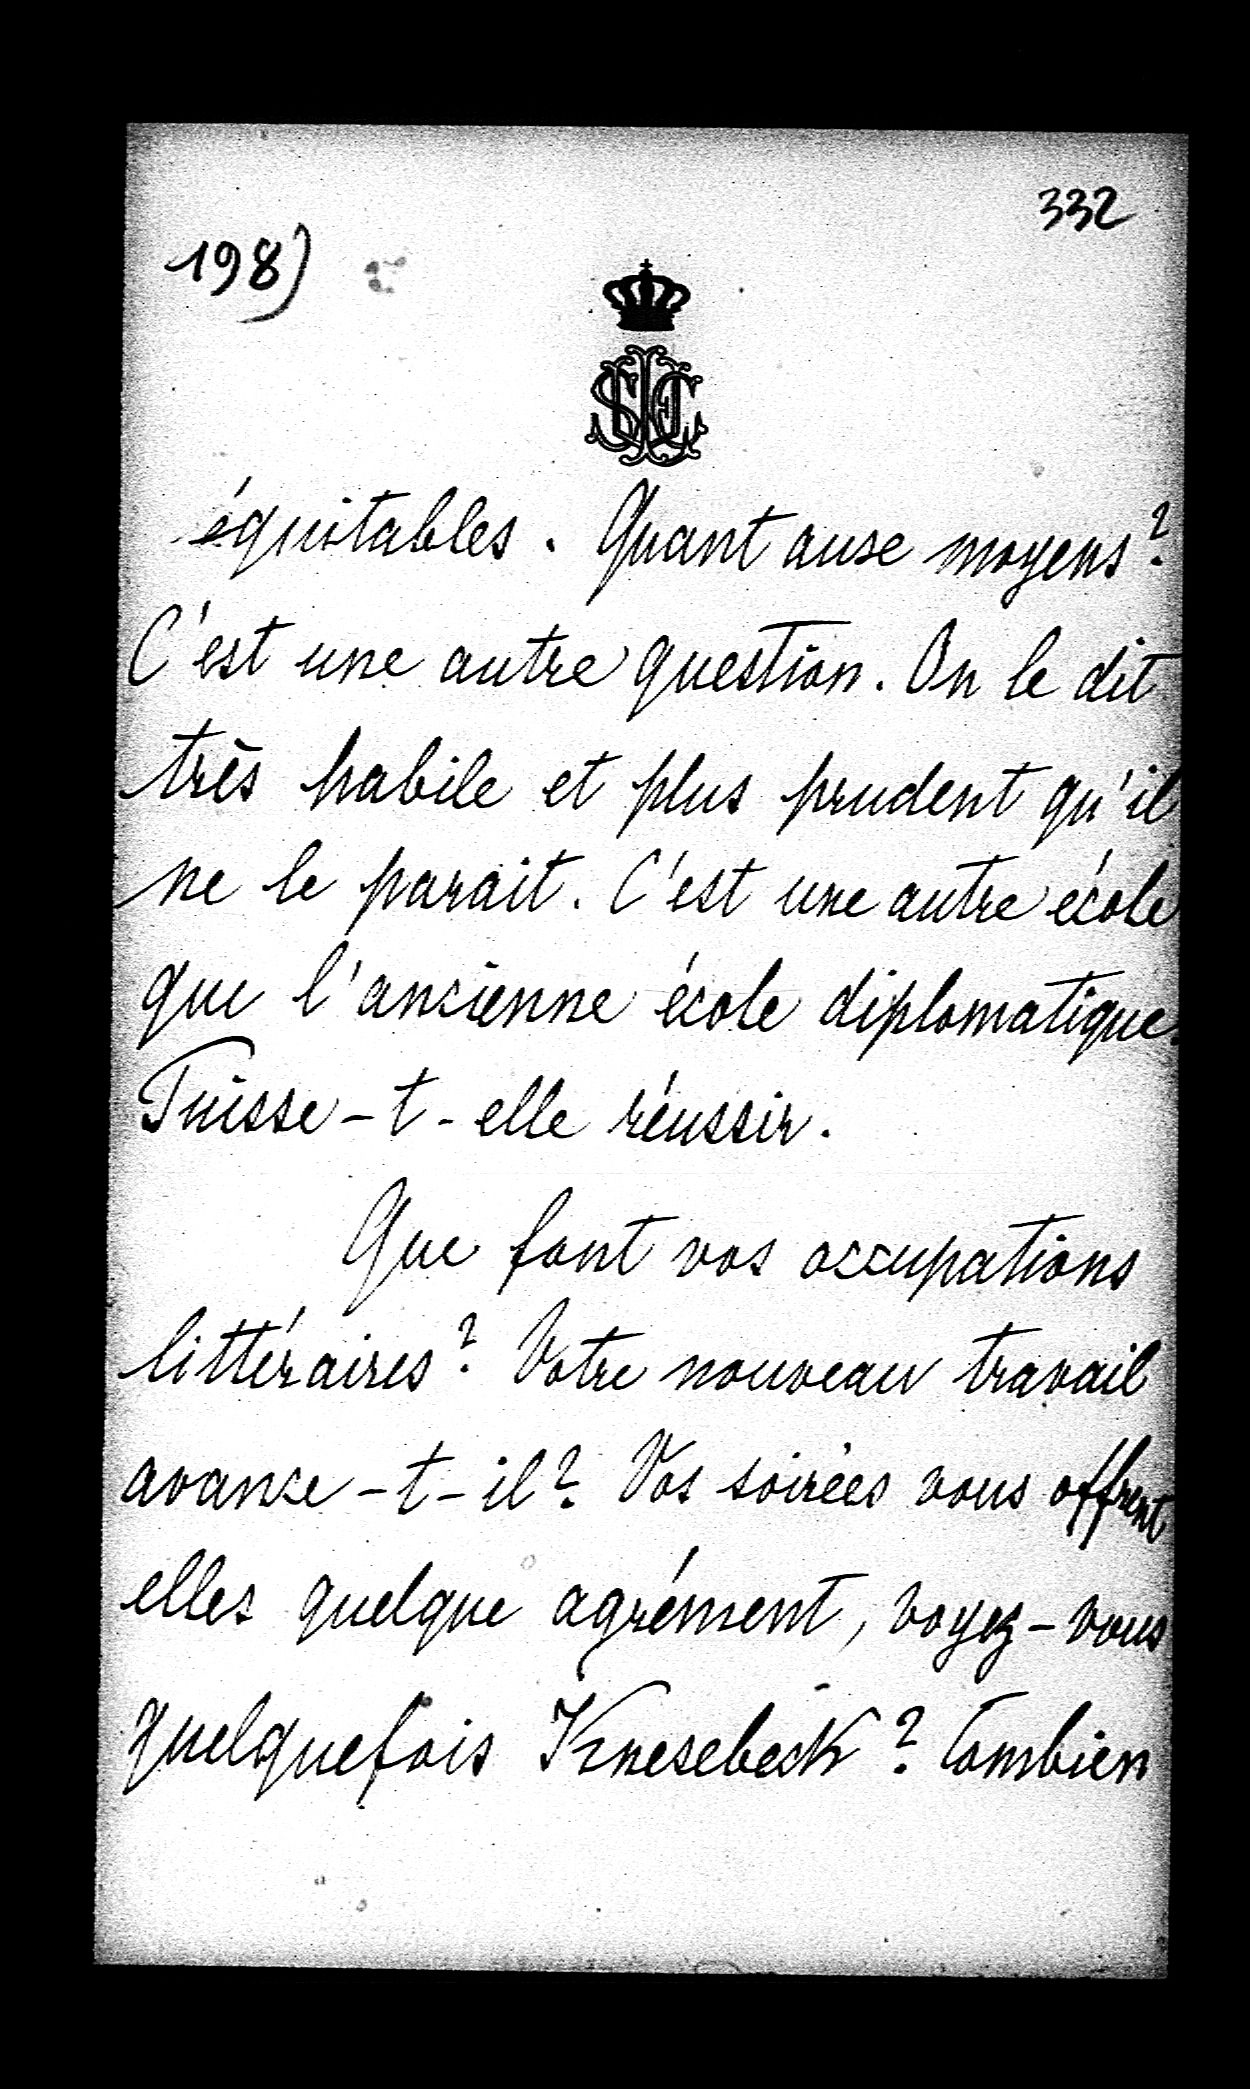 332
198)
équitables. Quant aux moyens?
C'est une autre question. On le dit
très habile et plus prudent qu'il
ne le parait. C'est une autre école
que l'ancienne école diplomatique.
Puisse-t-elle réussir.
Que font vos occupations
littéraires? Votre nouveau travail
avance-t-il? Vos soirées vous offrent
elles quelque agrément, voyez-vous
quelquefois Knesebeck? Combien